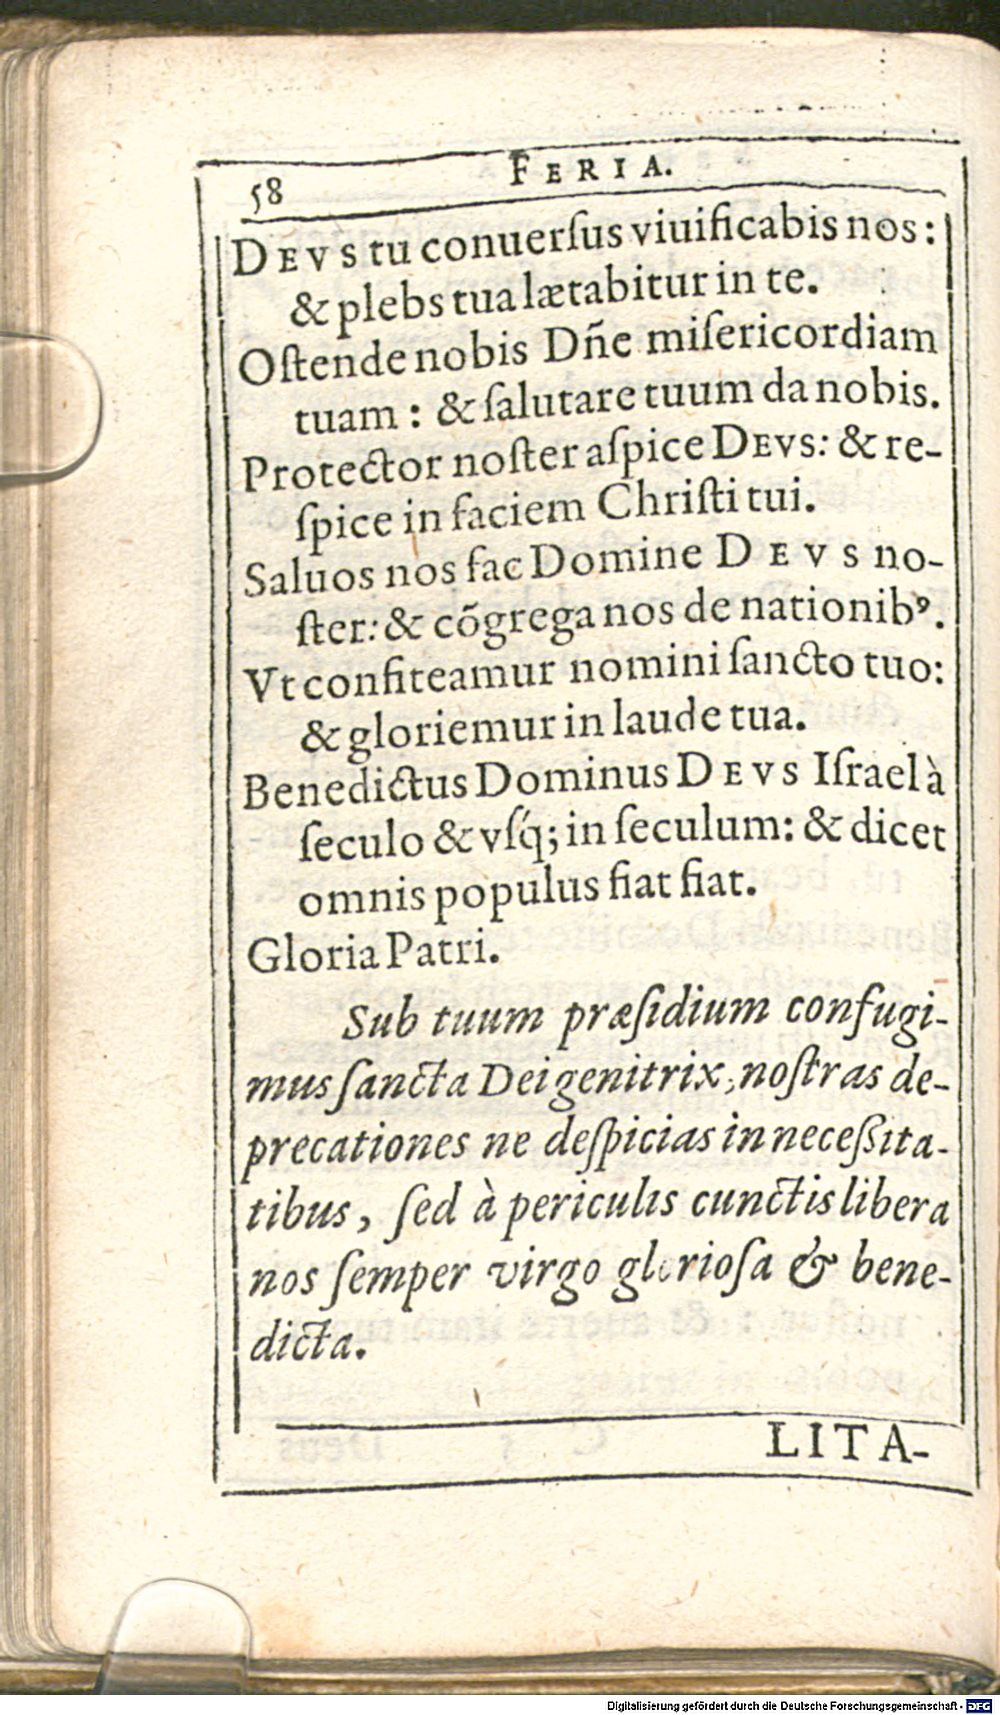 58
FERIA.
DEVS tu conuerſus viuificabis nos:
& plebs tua lætabitur in te.
Oſtende nobis Dñe miſericordiam
tuam : & ſalutare tuum da nobis.
Protector noſter aſpice DEVS: & re-
ſpice in faciem Chriſti tui.
Saluos nos fac Domine DEVS no-
ſter: & cõgrega nos de nationibꝰ.
Vt confiteamur nomini ſancto tuo:
& gloriemur in laude tua.
Benedictus Dominus DEVS Iſrael à
ſeculo & vſq́; in ſeculum: & dicet
omnis populus fiat fiat.
Gloria Patri.
Sub tuum præſidium confugi-
mus ſancta Dei genitrix, noſtras de-
precationes ne deſpicias in neceſsita-
tibus, ſed à periculis cunctis libera
nos ſemper virgo glorioſa & bene-
dicta.
LITA-
Digitalisierung gefördert durch die Deutsche Forschungsgemeinschaft - DFG